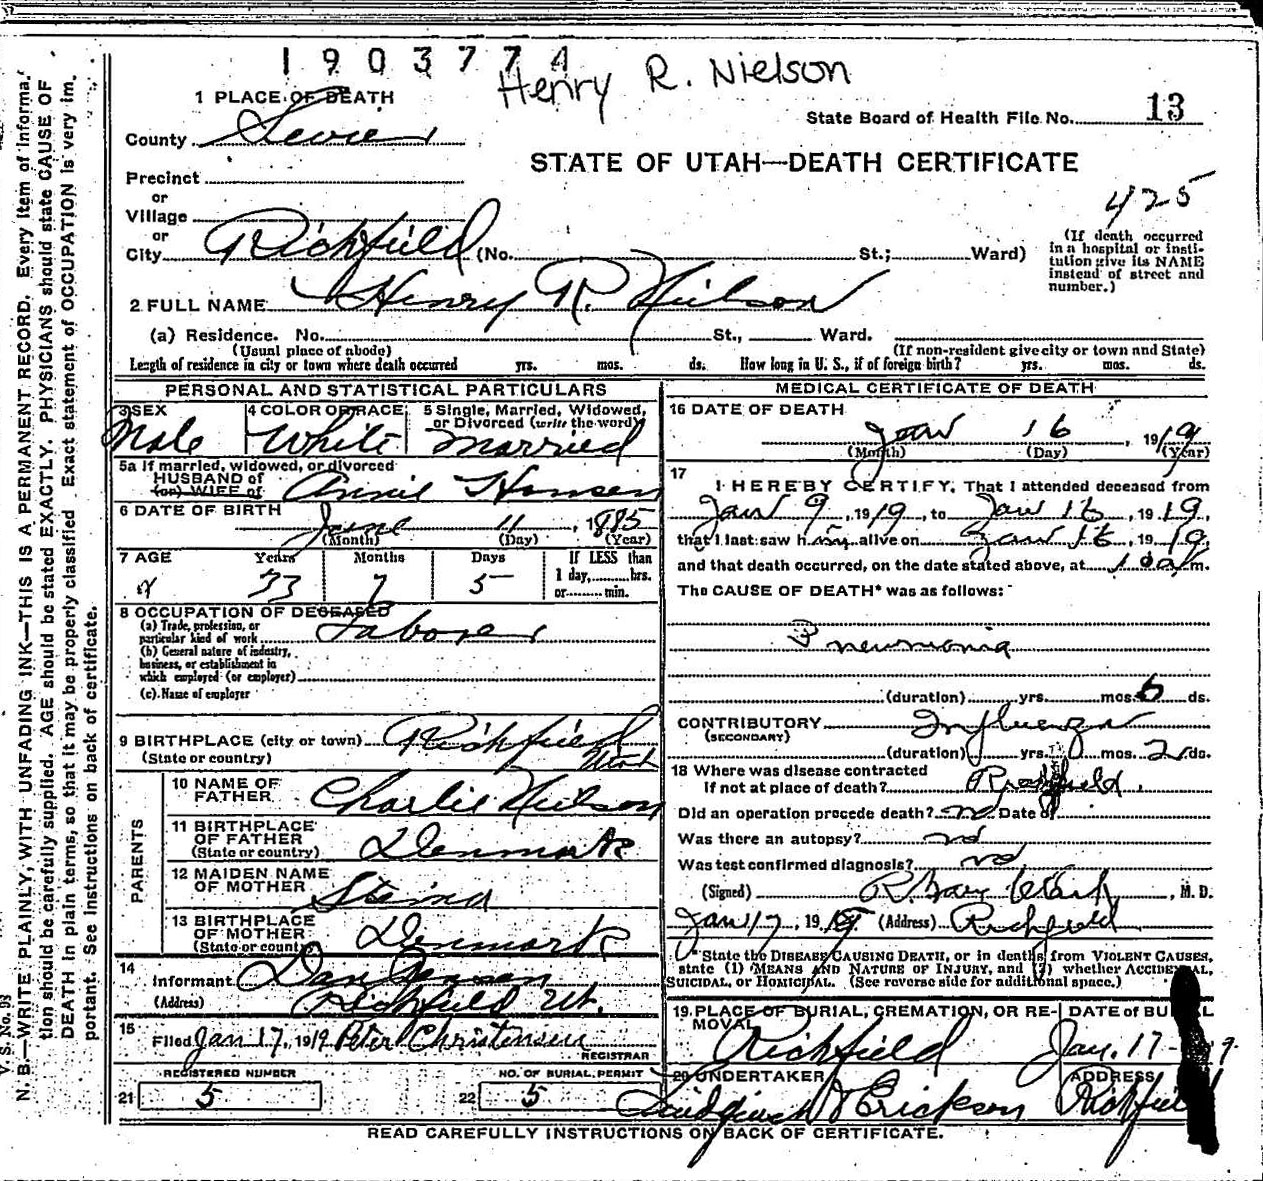 1903774
Henry R. Nielson
1 PLACE OF DEATH
State Board of Health File No. 13
County Sevier
STATE OF UTAH—DEATH CERTIFICATE
Precinct
or
Village
or
City Richfield (No. St.; Ward)
425
(If death occurred
in a hospital or insti-
tution give its NAME
instead of street and
number.)
2 FULL NAME Henry R. Nielson
(a) Residence. No. St., Ward.
(Usual place of abode) (If non-resident give city or town and State)
Length of residence in city or town where death occurred yrs. mos. ds. How long in U. S., if of foreign birth? yrs. mos. ds.
PERSONAL AND STATISTICAL PARTICULARS
3 SEX Male
4 COLOR OR RACE White
5 Single, Married, Widowed,
or Divorced (write the word)
Married
5a If married, widowed, or divorced
HUSBAND of
(or) WIFE of Annie Hansen
6 DATE OF BIRTH June 11, 1885
(Month) (Day) (Year)
7 AGE Years Months Days If LESS than
33 7 5 1 day, hrs.
or min.
8 OCCUPATION OF DECEASED
(a) Trade, profession, or
particular kind of work Laborer
(b) General nature of industry,
business, or establishment in
which employed (or employer)
(c) Name of employer
9 BIRTHPLACE (city or town) Richfield
(State or country) Utah
PARENTS
10 NAME OF
FATHER Charlie Neilson
11 BIRTHPLACE
OF FATHER
(State or country) Denmark
12 MAIDEN NAME
OF MOTHER Staina
13 BIRTHPLACE
OF MOTHER
(State or country) Denmark
14
Informant Dan Jensen
(Address) Richfield Ut.
15
Filed Jan 17, 1919 Peter Christensen
REGISTRAR
REGISTERED NUMBER
21 5
NO. OF BURIAL PERMIT
22 5
MEDICAL CERTIFICATE OF DEATH
16 DATE OF DEATH
Jan 16, 1919
(Month) (Day) (Year)
17
I HEREBY CERTIFY, That I attended deceased from
Jan 9, 1919, to Jan 16, 1919,
that I last saw him alive on Jan 16, 1919,
and that death occurred, on the date stated above, at m.
The CAUSE OF DEATH* was as follows:
Pneumonia
(duration) yrs. mos. 6 ds.
CONTRIBUTORY Influenza
(SECONDARY)
(duration) yrs. mos. 2 ds.
18 Where was disease contracted
If not at place of death? Richfield.
Did an operation precede death? no Date of
Was there an autopsy? no
Was test confirmed diagnosis? no
(Signed) R. Gary Clark, M. D.
Jan 17, 1919 (Address) Richfield
*State the DISEASE CAUSING DEATH, or in deaths from VIOLENT CAUSES,
state (1) MEANS AND NATURE OF INJURY, and (2) whether ACCIDENTAL,
SUICIDAL, or HOMICIDAL. (See reverse side for additional space.)
19. PLACE OF BURIAL, CREMATION, OR RE-
MOVAL Richfield
DATE of BURIAL
Jan. 17-
20 UNDERTAKER
& Erickson
ADDRESS
Richfield
READ CAREFULLY INSTRUCTIONS ON BACK OF CERTIFICATE.
V. S. No. 98
N. B.—WRITE PLAINLY, WITH UNFADING INK—THIS IS A PERMANENT RECORD. Every item of informa-
tion should be carefully supplied. AGE should be stated EXACTLY. PHYSICIANS should state CAUSE OF
DEATH in plain terms, so that it may be properly classified. Exact statement of OCCUPATION is very im-
portant. See instructions on back of certificate.